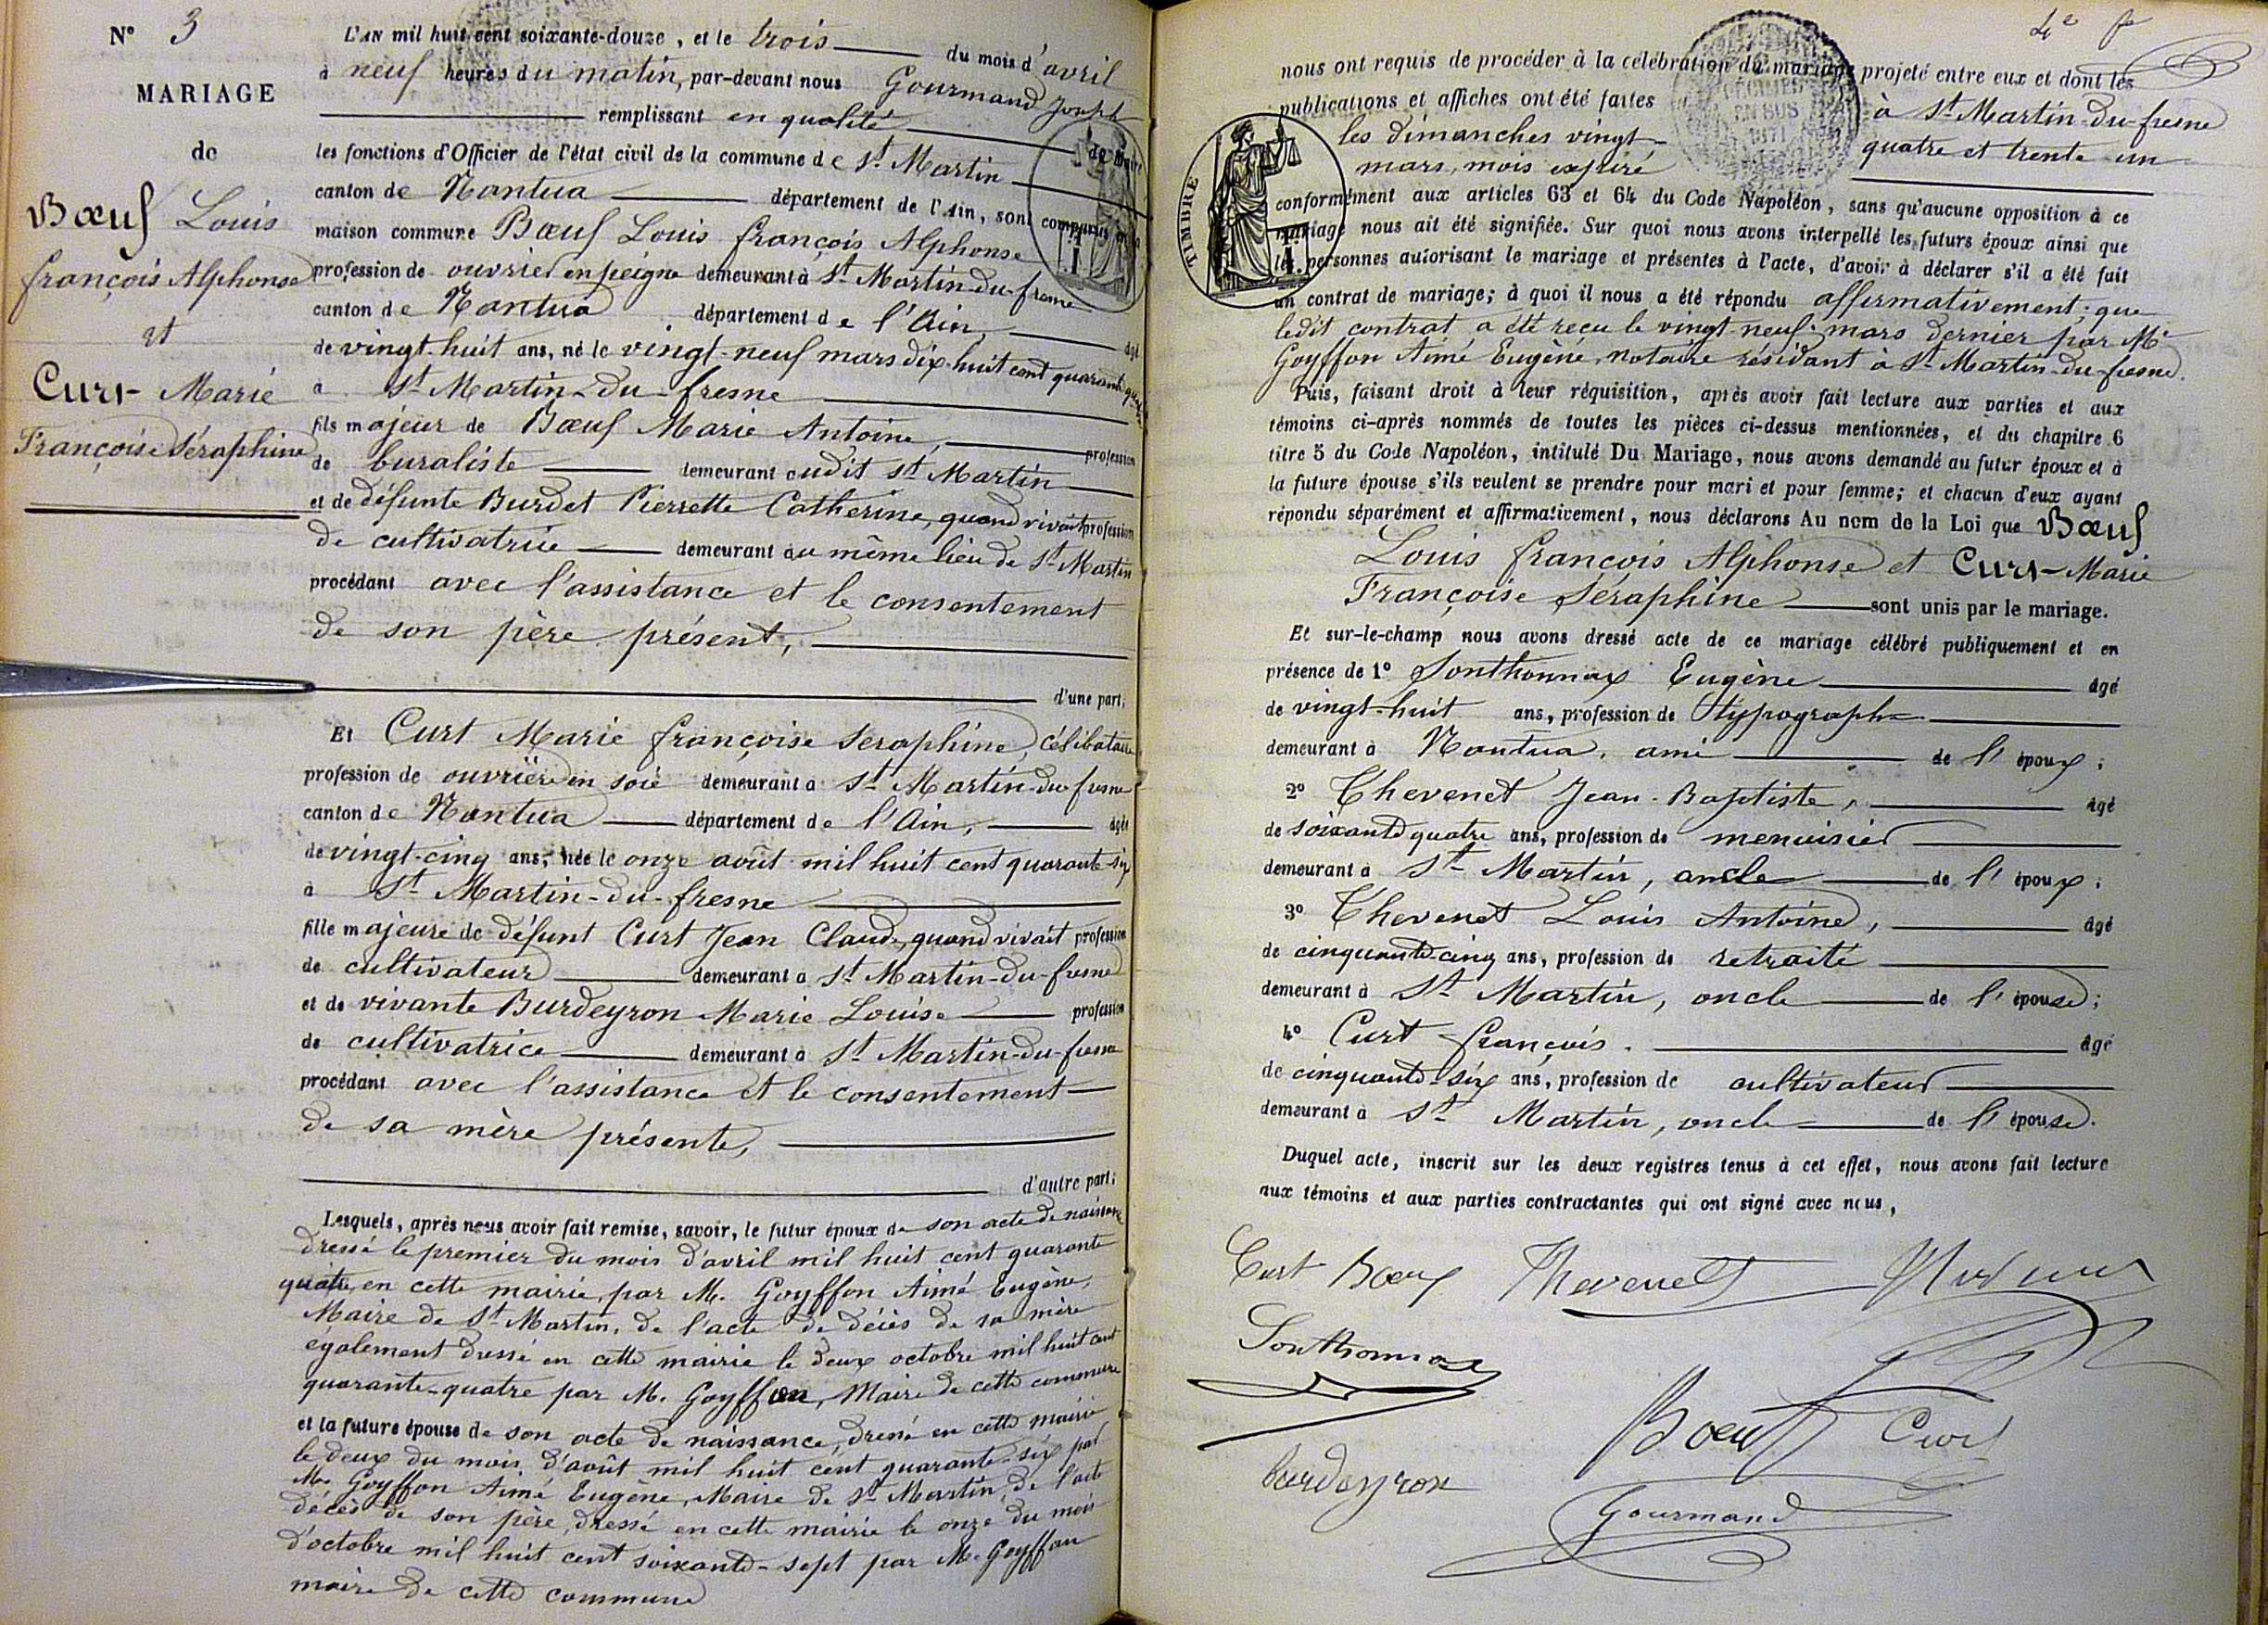 N° 3
MARIAGE
de
Bœuf Louis
françois Alphonse
et
Curt Marie
Françoise Séraphine
L'AN mil huit cent soixante-douze, et le trois du mois d'avril
à neuf heures du matin, par-devant nous Gourmand Joseph
remplissant en qualité de Maire
les fonctions d'Officier de l'état civil de la commune de St Martin
canton de Nantua département de l'Ain, sont comparus en la
maison commune Bœuf Louis françois Alphonse
profession de ouvrier en peigne demeurant à St Martin-du-fresne
canton de Nantua département de l'Ain, âgé
de vingt-huit ans, né le vingt-neuf mars dix-huit cent quarante quatre
à St Martin-du-fresne
fils majeur de Bœuf Marie Antoine, profession
de buraliste demeurant audit St Martin
et de défunte Burdet Pierrette Catherine, quand vivait profession
de cultivatrice demeurant au même lieu de St Martin
procédant avec l'assistance et le consentement
de son père présent,
d'une part;
Et Curt Marie françoise Séraphine, célibataire
profession de ouvrière en soie demeurant à St Martin-du-fresne
canton de Nantua département de l'Ain, âgée
de vingt-cinq ans, née le onze août mil huit cent quarante-six
à St Martin-du-fresne
fille majeure de défunt Curt Jean Claude, quand vivait profession
de cultivateur demeurant à St Martin-du-fresne
et de vivante Burdeyron Marie Louise profession
de cultivatrice demeurant à St Martin-du-fresne
procédant avec l'assistance et le consentement
de sa mère présente,
d'autre part;
Lesquels, après nous avoir fait remise, savoir, le futur époux de son acte de naissance
dressé le premier du mois d'avril mil huit cent quarante
quatre, en cette mairie, par M. Goyffon Aimé Eugène,
Maire de St Martin, de l'acte de décès de sa mère
également dressé en cette mairie le deux octobre mil huit cent
quarante-quatre par M. Goyffon, Maire de cette commune
et la future épouse de son acte de naissance, dressé en cette mairie
le deux du mois d'août mil huit cent quarante-six par
M. Goyffon Aimé Eugène, Maire de St Martin, de l'acte
décès de son père, dressé en cette mairie le onze du mois
d'octobre mil huit cent soixante-sept par M. Goyffon
maire de cette commune
4e f
nous ont requis de procéder à la célébration du mariage projeté entre eux et dont les
publications et affiches ont été faites à St Martin-du-fresne
les dimanches vingt-quatre et trente-un
mars, mois expiré
TIMBRE
conformément aux articles 63 et 64 du Code Napoléon, sans qu'aucune opposition à ce
mariage nous ait été signifiée. Sur quoi nous avons interpellé les futurs époux ainsi que
les personnes autorisant le mariage et présentes à l'acte, d'avoir à déclarer s'il a été fait
un contrat de mariage; à quoi il nous a été répondu affirmativement; que
ledit contrat a été reçu le vingt-neuf mars dernier par Me
Goyffon Aimé Eugène, notaire résidant à St Martin-du-fresne.
Puis, faisant droit à leur réquisition, après avoir fait lecture aux parties et aux
témoins ci-après nommés de toutes les pièces ci-dessus mentionnées, et du chapitre 6
titre 5 du Code Napoléon, intitulé Du Mariage, nous avons demandé au futur époux et à
la future épouse s'ils veulent se prendre pour mari et pour femme; et chacun d'eux ayant
répondu séparément et affirmativement, nous déclarons Au nom de la Loi que Bœuf
Louis françois Alphonse et Curt Marie
Françoise Séraphine sont unis par le mariage.
Et sur-le-champ nous avons dressé acte de ce mariage célébré publiquement et en
présence de 1° Sonthonnax Eugène âgé
de vingt-huit ans, profession de typographe
demeurant à Nantua, ami de l'époux;
2° Thevenet Jean-Baptiste, âgé
de soixante quatre ans, profession de menuisier
demeurant à St Martin, oncle de l'époux;
3° Thevenet Louis Antoine, âgé
de cinquante-cinq ans, profession de retraité
demeurant à St Martin, oncle de l'épouse;
4° Curt françois. âgé
de cinquante-six ans, profession de cultivateur
demeurant à St Martin, oncle de l'épouse.
Duquel acte, inscrit sur les deux registres tenus à cet effet, nous avons fait lecture
aux témoins et aux parties contractantes qui ont signé avec nous,
Curt Bœuf Thevenet
Sonthonnax
Bœuf Curt
burdeyron
Gourmand